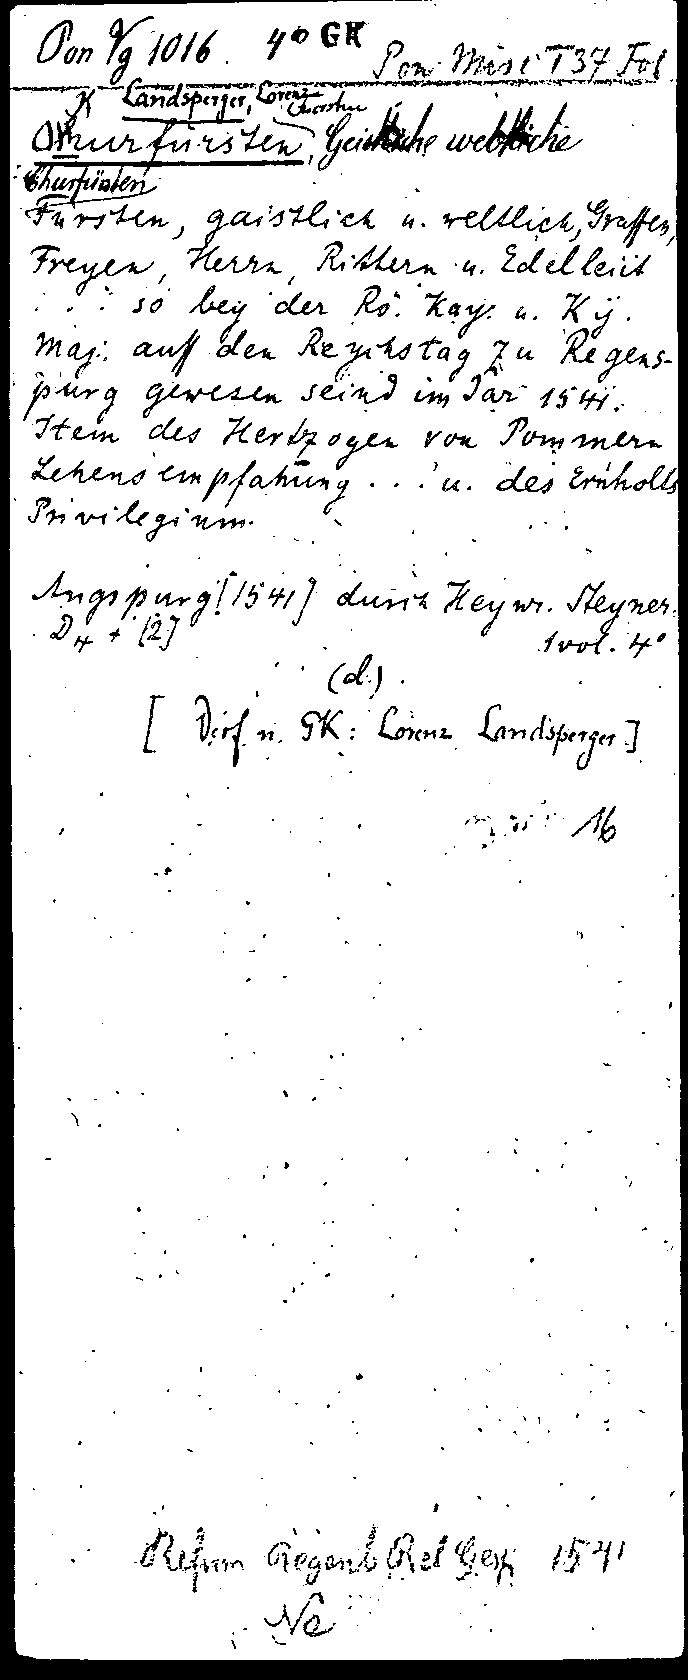 Pon Vg 1016. 4° GK
Pom Misc T 37 Fol
K Landsperger, Lorenz
Churfürsten, Geistliche weltliche
Churfürsten
Fürsten, gaistlich u. weltlich, Graffen,
Freyen, Herrn, Rittern u. Edelleüt
... so bey der Rö. Kay. u. Kü.
Maj. auff den Reychstag zu Regens-
purg gewesen seind im Jar 1541.
Item des Hertzogen von Pommern
Lehensempfahung ... u. des Ernholts
Privilegium.
Augspurg [1541] durch Heynr. Steyner.
D4 + [2] 1 vol. 4°
(d.)
[Verf. n. GK: Lorenz Landsperger]
16
Reform Regensb Rel Gesp 1541
Ne